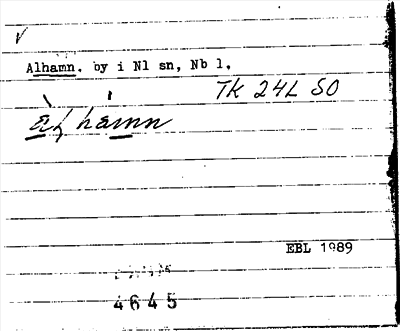 V
Alhamn. by i Nl sn, Nb l.
TK 24L SO
hamn
EBL 1989
4645